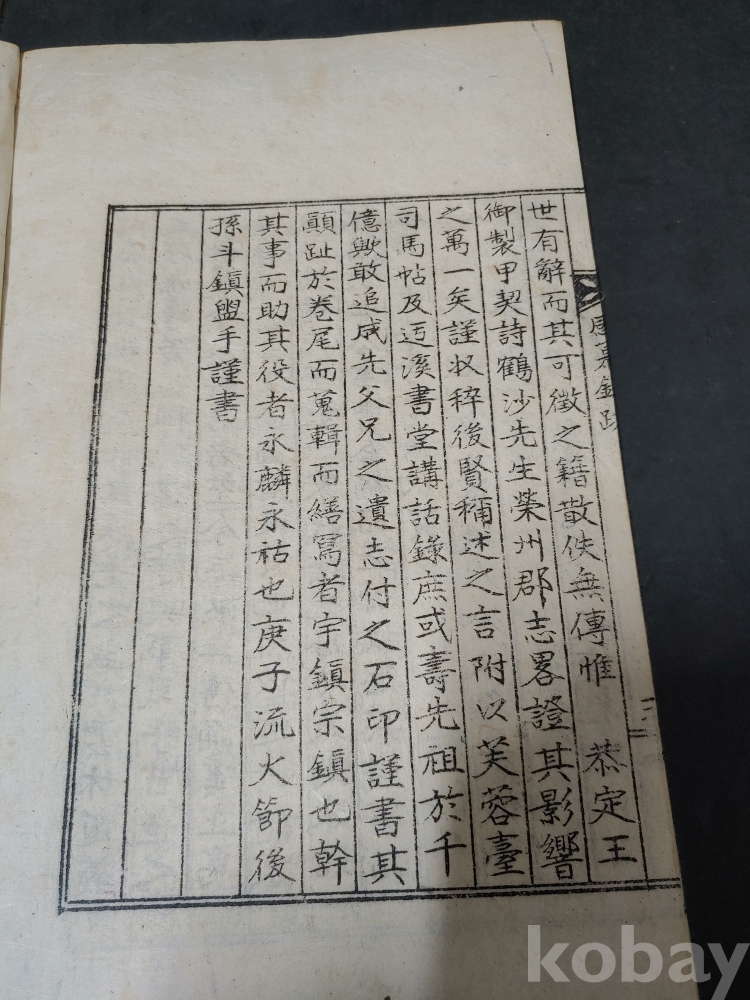 世有辭而其可徵之籍散佚無傳惟 恭定王
御製甲契詩鶴沙先生榮州郡志畧證其影響
之萬一矣謹収稡後賢稱述之言附以芙蓉臺
司馬帖及迃溪書堂講話錄庶或壽先祖於千
億歟敢追成先父兄之遺志付之石印謹書其
顚趾於卷尾而蒐輯而繕寫者宇鎭宗鎭也幹
其事而助其役者永麟永祜也庚子流火節後
孫斗鎭盥手謹書
kobay